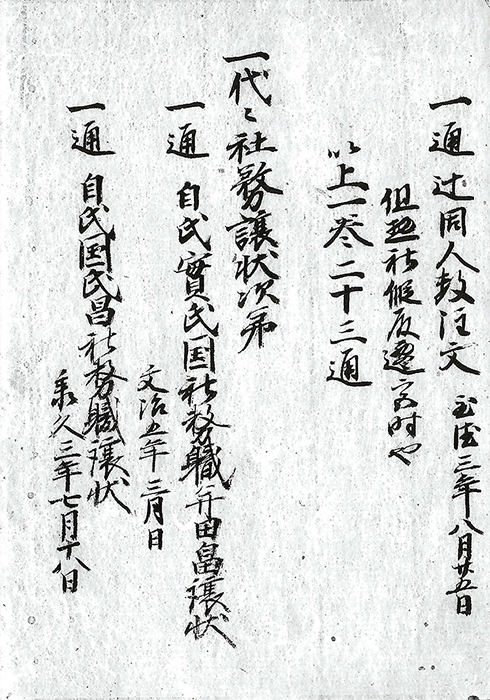 一通 辻固人数注文 至徳三年八月廿五日
但惣社假殿遷宮時也
以上一巻二十三通
一代々社務譲状次第
一通 自氏實氏国社務職幷田畠譲状
文治五年三月日
一通 自氏国氏昌社務職譲状
承久三年七月十八日